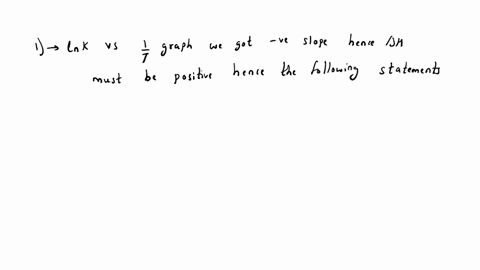 1) → lnk vs 1/T graph we got -ve slope hence ΔH
must be positive hence the following statements